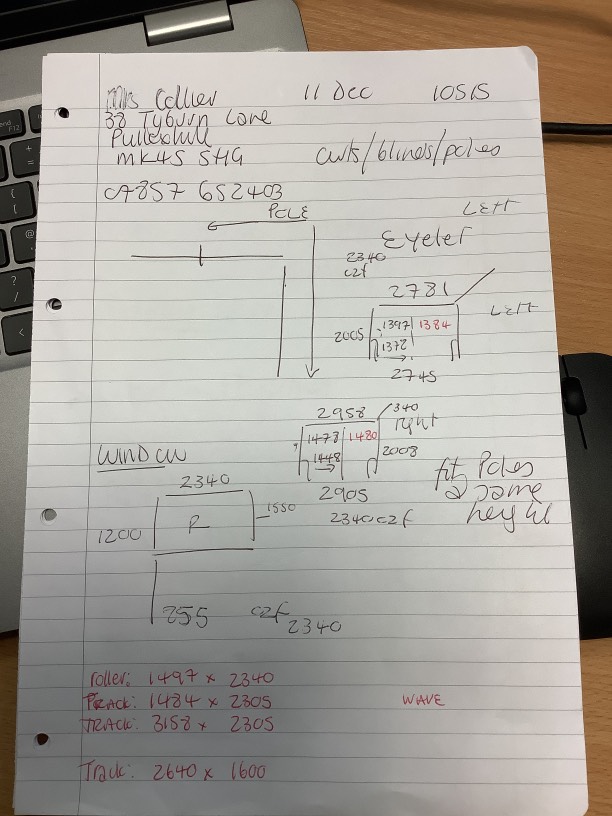 Mrs Collier 11 Dec 1051S
38 Tyburn Lane
Pulloxhill
MK45 5HG curts/blinds/poles
07857 652403
POLE LEFT
Eyelet
2340
c2f
2781
LEFT
1397 1384
2005
1372
2745
2958 340
right
1473 1480
2008
1448
WINDOW
2905
fit Poles
@ same
height
2340
1550
2340 c2f
1200
R
755 c2f
2340
roller: 1497 x 2340
TRACK: 1484 x 2305 WAVE
TRACK: 3158 x 2305
Track: 2640 x 1600